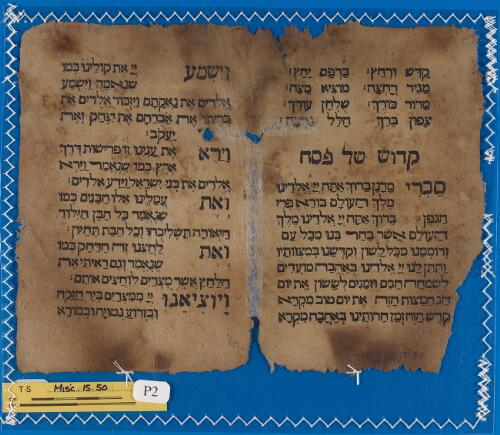 קדש ורחץ׃ כרפס יחץ׃
מגיד רחצה׃ מוציא מצה׃
מרור כורך׃ שלחן עורך׃
צפון ברך׃ הלל נרצה׃
קדוש של פסח
סברי מרנן ברוך אתה יְיָ אלדינו
מלך העולם בורא פרי
הגפן׃ ברוך אתה יְיָ אלדינו מלך
העולם אשר בחר בנו מכל עם
ורוממנו מכל לשון וקדשנו במצוותיו
ותתן לנו יְיָ אלדינו באהבה מועדים
לשמחה חגים וזמנים לששון את יום
חג המצות הזה את יום טוב מקרא
קדש הזה זמן חרותינו באהבה מקרא
וישמע יְיָ את קולינו כמו
שנאמר וישמע
אלדים את נאקתם ויזכור אלדים את
בריתו את אברהם את יצחק ואת
יעקב׃
וירא את ענינו זו פרישות דרך
ארץ כמו שנאמר וירא
אלדים את בני ישראל וידע אלדים׃
ואת עמלינו אלו הבנים כמו
שנאמר כל הבן הילוד
היאורה תשליכהו וכל הבת תחיון׃
ואת לחצנו זה הדחק כמו
שנאמר וגם ראיתי את
הלחץ אשר מצרים לוחצים אותם׃
ויוציאנו יְיָ ממצרים ביד חזקה
ובזרוע נטויה ובמורא
T-S Misc. 15.50
P2